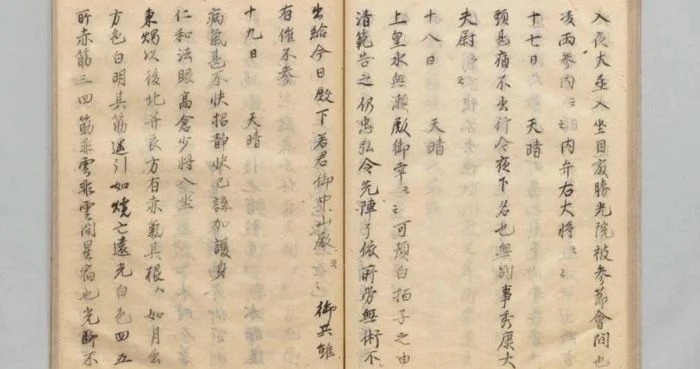 入夜大丞入坐自最勝光院被参節會間也
凌雨参内云々内弁右大将云々
十七日 天晴
頭忽痛不出行今夜下名也無別事秀康大
夫尉云々
十八日 天晴
上皇水無瀬殿御幸云々可預白拍子之由
清範告之仍忠弘令先陣了依所労無術不
出給今日殿下若君御中山殿云々御共雖
有催不参
十九日 天晴
病氣甚不快招静快已講加護身
仁和法眼高倉少将入坐
秉燭以後北并艮方有赤氣其根ハ如月出
方色白明其筋遥引如焼亡遠光白色四五
所赤筋三四筋非雲非雲間星宿也光聊不